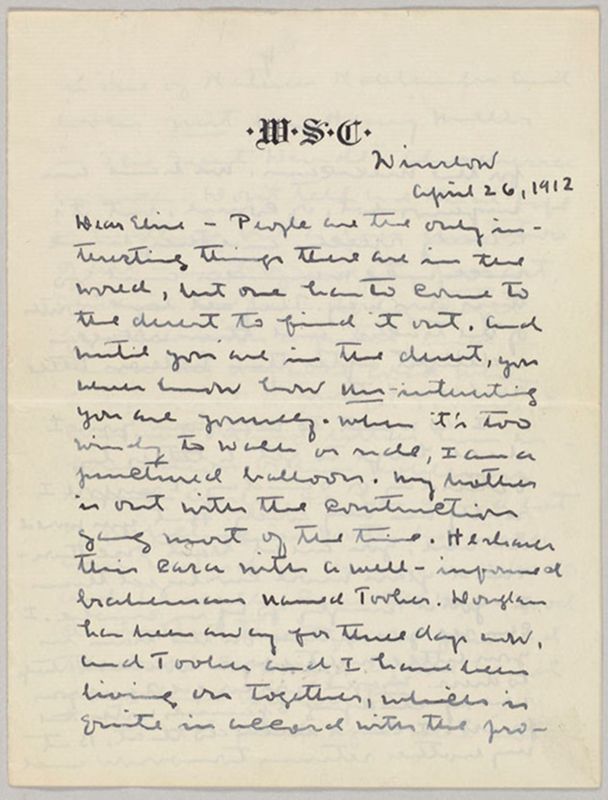 ·W·S·C·
Winslow
April 26, 1912
Dear Elsie – People are the only in-
teresting things there are in the
world, but one has to come to
the desert to find it out. And
until you are in the desert, you
never know how un-interesting
you are yourself. When it's too
windy to walk or ride, I am a
punctured balloon. My brother
is out with the construction
gang most of the time. He shares
this casa with a well-informed
brakeman named Tooker. Douglas
has been away for three days now,
and Tooker and I have been
living on together, which is
quite in accord with the pro-